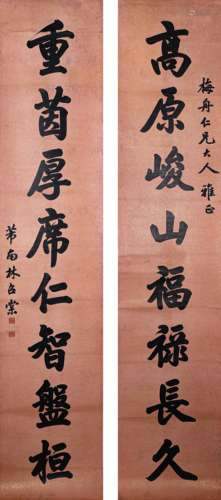 梅舟仁兄大人雅正
高原峻山福祿長久
重茵厚席仁智盤桓
芾南林召棠